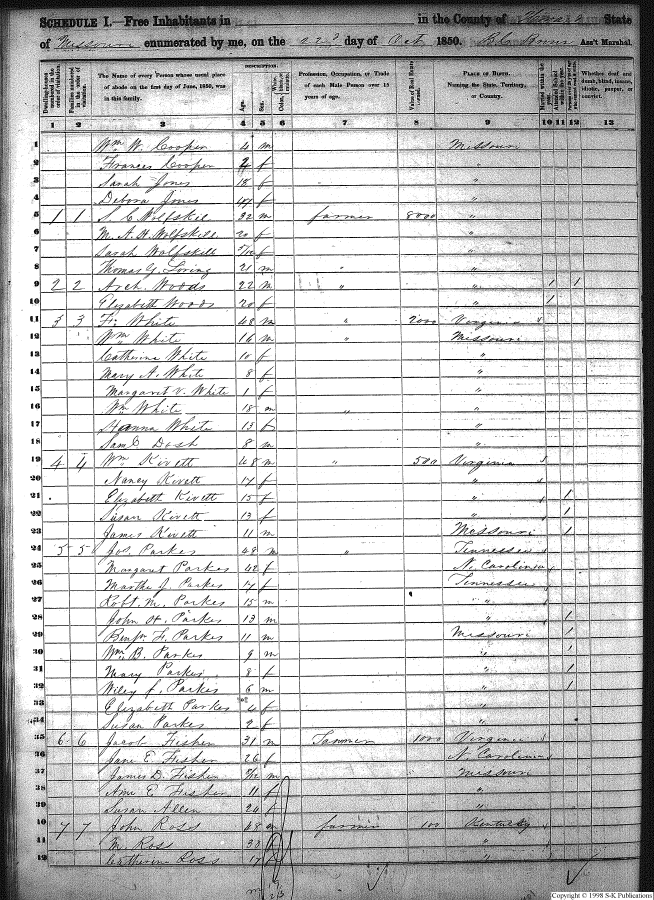 SCHEDULE I.—Free Inhabitants in in the County of State
of Missouri enumerated by me, on the 22 day of Oct 1850. Ass't Marshal.
DESCRIPTION.
Dwelling-houses numbered in the order of visitation.
Families numbered in the order of visitation.
The Name of every Person whose usual place of abode on the first day of June, 1850, was in this family.
Age.
Sex.
Color,
Profession, Occupation, or Trade of each Male Person over 15 years of age.
Value of Real Estate owned.
PLACE OF BIRTH. Naming the State, Territory, or Country.
Married within the year.
Attended School within the year.
Whether deaf and dumb, blind, insane, idiotic, pauper, or convict.
1 2 3 4 5 6 7 8 9 10 11 12 13
1 Wm W. Cooper 4 m Missouri
2 Frances Cooper f "
3 Sarah Jones 18 f "
4 Debora Jones 47 f "
5 1 1 S. C. Wolfskil 32 m farmer 8000 "
6 M. A. H. Wolfskill 20 f "
7 Sarah Wolfskill f "
8 Thomas G. Loring 21 m " "
9 2 2 Arch. Woods 22 m " " 1 1
10 Elizabeth Woods 20 f " 1
11 3 3 White 48 m " 2000 Virginia
12 Wm White 16 m " Missouri
13 Catherine White 10 f "
14 Mary A. White 8 f "
15 Margaret V. White 1 f "
16 Wm White 18 m " "
17 Hanna White 13 f "
18 Saml Dash 8 m "
19 4 4 Wm Kivett 48 m " 500 Virginia
20 Nancy Kivett 17 f "
21 Elizabeth Kivett 15 f " 1
22 Susan Kivett 13 f " 1
23 James Kivett 11 m Missouri 1
24 5 5 Jos. Parkes 48 m " Tennessee
25 Margaret Parkes 42 f N. Carolina
26 Martha J. Parkes 17 f Tennessee
27 Robt. M. Parkes 15 m "
28 John H. Parkes 13 m " 1
29 Benjn. F. Parkes 11 m Missouri 1
30 Wm B. Parkes 9 m " 1
31 Mary Parkes 8 f " 1
32 Wiley f. Parkes 6 m " 1
Elizabeth Parkes 4 f "
34 Susan Parkes 2 f "
35 6 6 Jacob Fisher 31 m Tanner 1000 Virginia
36 Jane E. Fisher 26 f N. Carolina
37 James D. Fisher m Missouri
38 Ami E. Fisher 11 f "
39 Susan Allen 20 f "
10 7 7 John Ross 48 m farmer 100 Kentucky
11 M. Ross 30 f "
12 Catherine Ross 17 f "
Copyright © 1998 S-K Publications